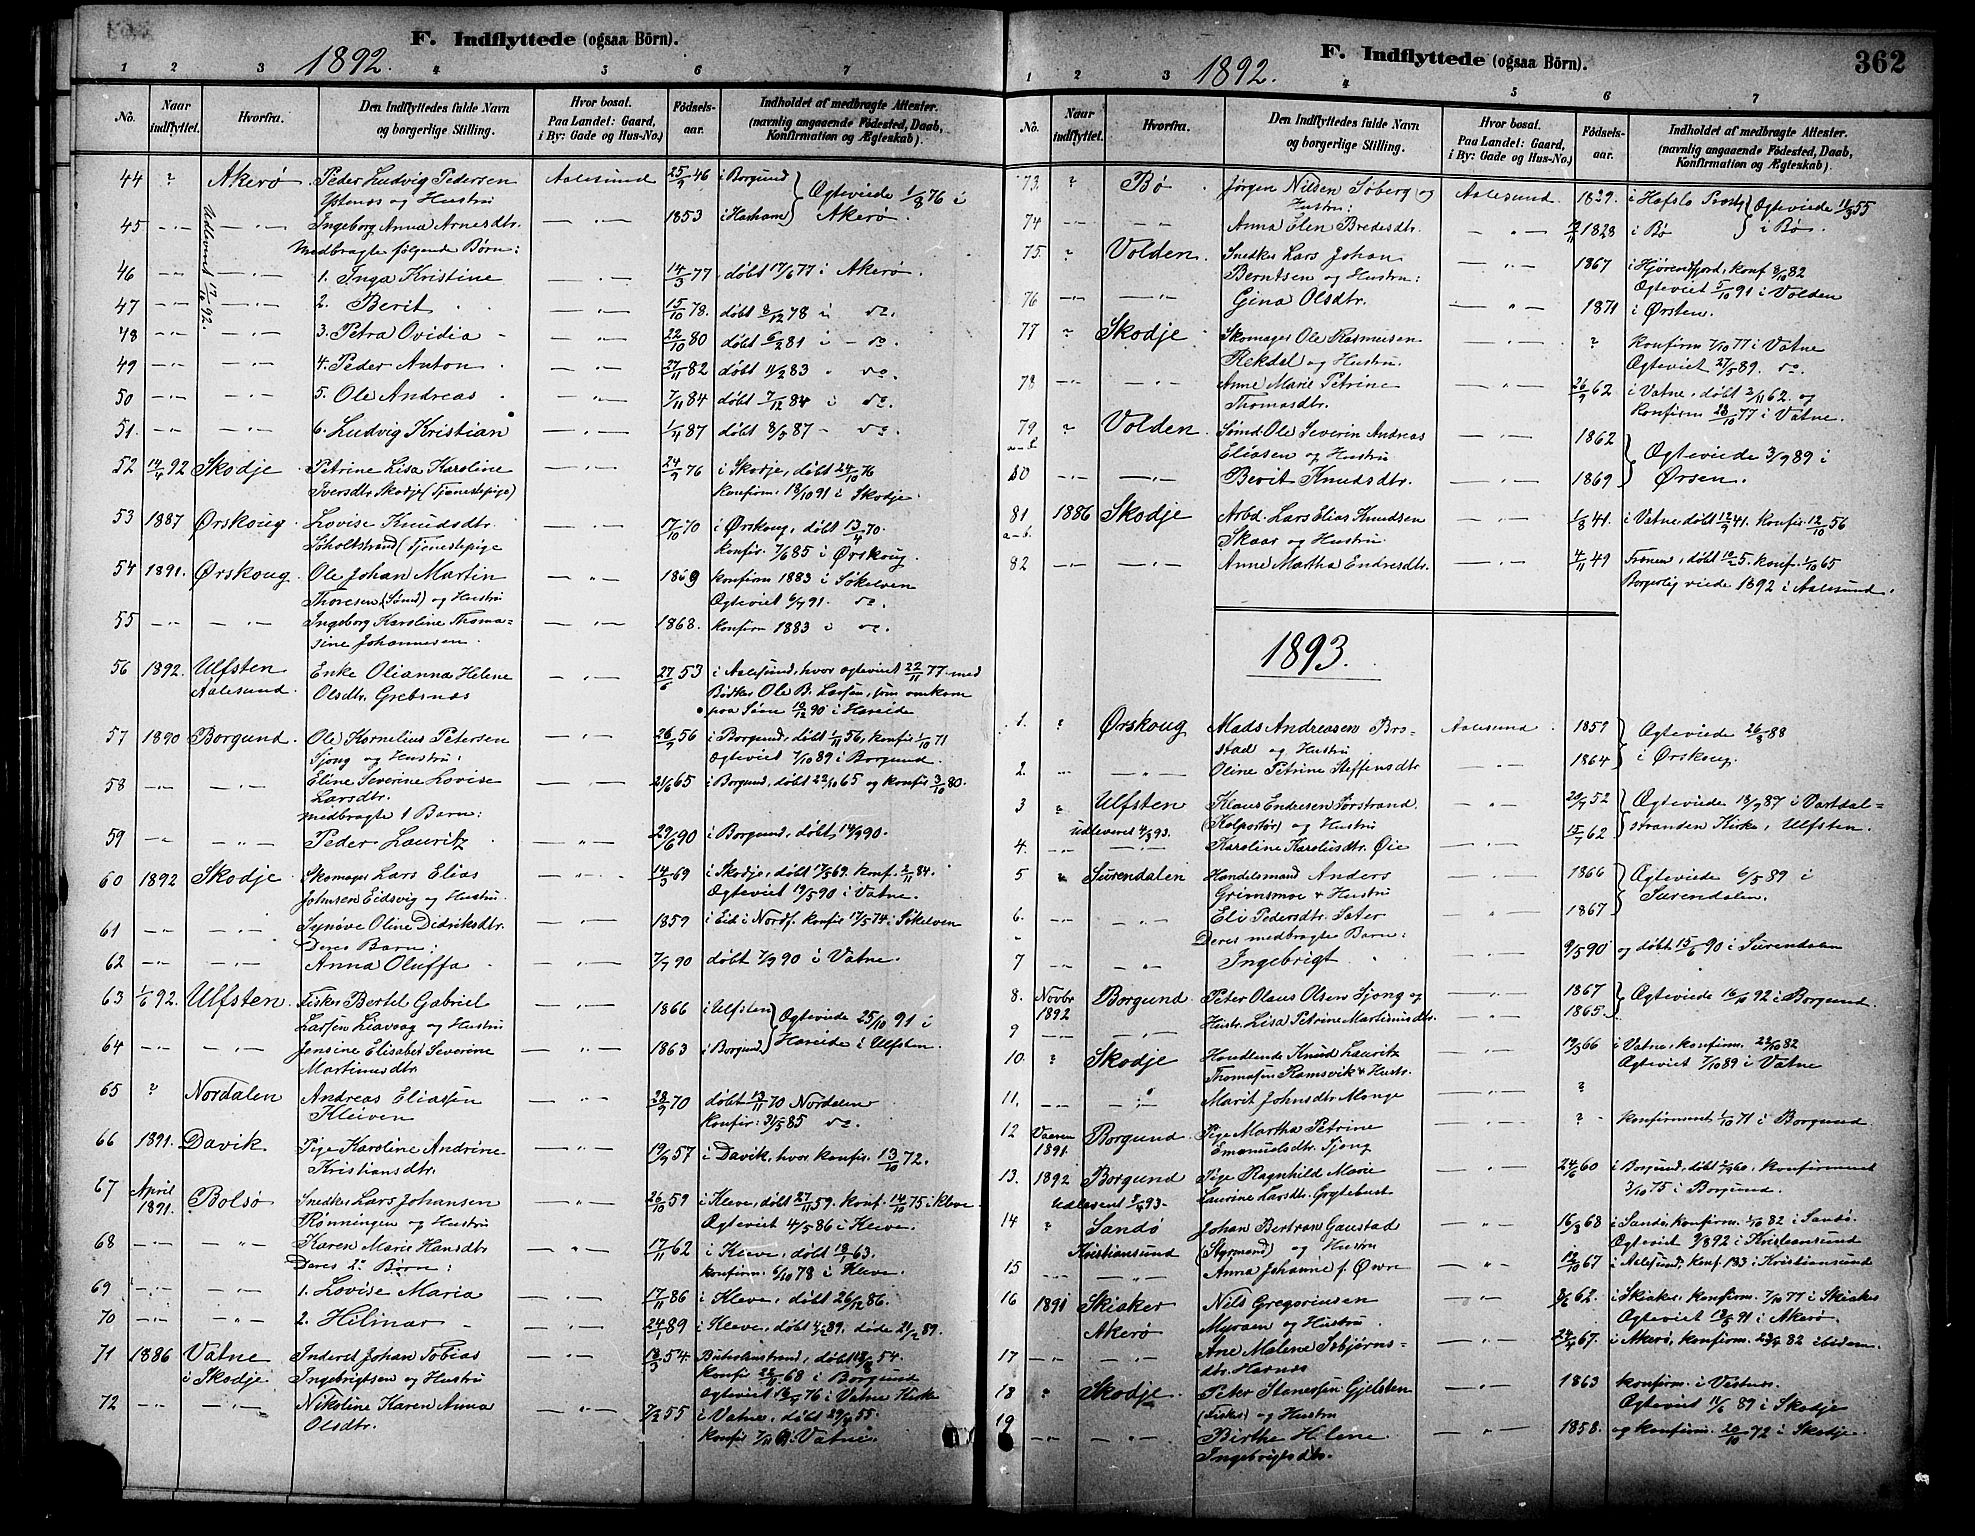 F. Indflyttede (ogsaa Börn).
1892.
1 2 3 4 5 6 7
No. Naar indflyttet. Hvorfra. Den Indflyttedes fulde Navn og borgerlige Stilling. Hvor bosat. Paa Landet: Gaard, i By: Gade og Hus-No.) Födsels-aar. Indholdet af medbragte Attester. (navnlig angaaende Födested, Daab, Konfirmation og Ægteskab).
44 ? Akerø Peder Ludvig Pedersen Aalesund 25/9 46 i Borgund Ogteviede 1/8 76 i
og Hustru
45 Ingeborg Anna Arnesdtr. 1853 i Haram Akerø.
Medbragte følgende Børn:
Udleveret 17/10 92.
46 1. Inga Kristine 14/3 77, døbt 17/6 77 i Akerø.
47 2. Berit 15/10 78. døbt 8/12 78 i do.
48 3. Petra Ovidia 22/10 80 døbt 6/2 81 i do.
49 4. Peder Anton 27/11 82 døbt 11/2 83 do.
50 5. Ole Andreas 7/11 84 døbt 7/12 84 i do.
51. 6. Ludvig Kristian 1/11 87 døbt 8/5 87 do.
52 14/4 92 Skodje Petrine Lisa Karoline 24/9 76 i Skodje, døbt 24/10 76
Iversdtr. Skodje (Tjenestepige) konfirm. 18/10 91 i Skodje.
53 1887 Ørskoug Lovise Knudsdtr. 17/10 70 i Ørskoug, døbt 13/4 70.
Søholtstrand (Tjenestepige konfir. 7/6 85 i Ørskoug
54 1891. Ørskoug Ole Johan Martin 1869 konfirm 1883 i Søkelven
Thoresen (Sømd) og Hustru Ogteviet 6/7 91. do.
55 Ingeborg Karoline Thoma- 1868. konfirm 1883 i do.
sine Johannesen.
56 1892. Ulfsten Enke Olianna Helene 27/6 53 i Aalesund, hvor ogteviet 22/11 77 med
Aalesund. Olsdtr. Grebsnæs Bødker Ole B. Larsen, som omkom
paa Søen 10/12 90 i Hareide
57 1890 Borgund. Ole Kornelius Petersen 26/9 56 i Borgund, døbt 1/11 56, konfir 1/10 71
Sjong og Hustru: Ogteviet 7/10 89 i Borgund.
58 Eline Severine Lovise 21/6 65 i Borgund, døbt 22/10 65 og konfir 3/10 80.
Larsdtr.
medbragte 1 Barn:
59 Peder Lauritz 29/6 90 i Borgund, døbt 14/9 90.
60 1892 Skodje Skomager Lars Elias 14/3 69 i Skodje, døbt 17/5 69. konf. 2/11 84.
Johnsen Eidsvig og Hustru. Ogteviet 19/5 90 i Vatne.
61 Synøve Oline Didriksdtr. 1859 i Eid i Nordf. konfir 17/5 74 i Søkelven
Deres Barn:
62 Anna Oluffa 7/7 90 døbt 7/9 90 i Vatne.
63 1/6 92. Ulfsten. Fisker Bertel Gabriel 1866 i Ulfsten Ogteviede 25/10 91 i
Larsen Liavaag og Hustru
64 Jensine Elisabet Severine 1863 i Borgund Hareide i Ulfsten.
Martinusdtr.
65 ? Nordalen Andreas Eliassen 28/9 70 døbt 13/11 70 Nordalen
Kleiven konfir: 31/5 85 do.
66 1891. Davik Pige Karoline Andrine 19/9 57 i Davik, hvor konfir. 13/10 72.
Kristiansdtr.
67 April 1891. Bolsø Snedker Lars Johansen 26/10 59 i Kleve, døbt 27/11 59. konf. 14/10 75 i Kleve.
Rønningen og Hustru Ogteviet 4/5 86 i Kleve.
68 Karen Marie Hansdtr 17/11 62 i Kleve, døbt 18/1 63.
Deres 2 Børn: konfirm. 6/10 78 i Kleve.
69 1. Lovise Maria 17/11 86 i Kleve, døbt 26/12 86.
70 2. Hilmar 24/1 89 i Kleve, døbt 4/2 89, døde 21/2 89.
71 1886 Vatne Johan Tobias 18/3 54
i Skodje Ingebrigtsen og Hustru 68 i Borgund
Ogteviet 76 i Vatne Kirke
72 Nikoline Karen Anna 7/2 55 i Vatne, døbt 29/4 55.
Olsdtr. konfir i Vatne.
F. Indflyttede (ogsaa Börn). 362
1892.
1 2 3 4 5 6 7
No. Naar indflyttet. Hvorfra. Den Indflyttedes fulde Navn og borgerlige Stilling. Hvor bosat. Paa Landet: Gaard, i By: Gade og Hus-No.) Födsels-aar. Indholdet af medbragte Attester. (navnlig angaaende Födested, Daab, Konfirmation og Ægteskab).
73. ? Bø Jørgen Nilsen Søberg og Aalesund 1829. i Hafslo Ogteviede 11/3 55
Hustru:
74 Anna Elen Bredesdtr. 1828 i Bø i Bø.
75. ? Volden Snedker Lars Johan 1867 i Hjørendfjord, konf 8/10 82
Berntsen og Hustru: Ogteviet 5/10 91 i Volden
76 Gina Olsdtr. 1871 i Ørsten.
77 ? Skodje Skomager Ole Rasmussen ? konfirm 7/10 77 i Vatne
Rekdal og Hustru Ogteviet 27/5 89. do.
78 Anne Marie Petrine 26/9 62 i Vatne, døbt 2/11 62. og
Thomasdtr. konfirm 28/10 77 i Vatne.
79 a-b ? Volden Sømd. Ole Severin Andreas 1862 Ogteviede 3/9 89 i
Eliasen og Hustru
80 Berit Knudsdtr. 1869 Ørsen.
81 a-b. 1886 Skodje Arbd. Lars Elias Knudsen 1/8 41. i Vatne, døbt 12/9 41. konfir. 12/10 56
Skaar og Hustru
82 Anne Martha Endresdtr. 4/11 49 konf. 1/10 65
Borgerlig viede 1892 i Aalesund.
1893.
1. ? Ørskoug Mads Andreasen Bro- Aalesund 1857 Ogteviede 26/3 88
stad og Hustru
2. Oline Petrine Steffensdtr 1864 i Ørskoug.
3 ? Ulfsten Klaus Endresen Sørstrand 20/9 52 Ogteviede 18/9 87 i Vartdal-
udleveret 4/3 93. (Kolportør) og Hustru
4. Karoline Karolusdtr. Øie 15/7 62 stranden Kirke, Ulfsten.
5 Surendalen Handelsmand Anders 1866 Ogteviede 6/5 89 i
Grimsmoe & Hustru
6. Eli Pedersdtr. Sæter 1867 Surendalen.
Deres medbragte Barn:
7 Ingebrigt 9/5 90 og døbt 15/6 90 i Surendalen
8. Novbr 1892 Borgund Peter Olaus Olsen Sjong og 1867 Ogteviede 16/10 92 i Borgund.
9 Hustr. Lisa Petrine Martinusdtr. 1865
10. ? Skodje Handlende Knud Lauritz 19/3 66 i Vatne, konfirm. 22/10 82
Thomasen Ramsvik & Hustr. Ogteviet 7/10 89 i Vatne
11. Marit Johnsdtr Monge ?
12 Vaaren 1891. Borgund. Pige Martha Petrine ? konfirmeret 1/10 71 i Borgund
Emanuelsdtr. Sjong
13. 1892 Borgund Pige Ragnhild Marie 24/6 60 i Borgund, døbt 60. konfirmeret
Laurine Larsdtr. Grytebust 3/10 75 i Borgund.
14 ? Sandø Johan Bertran Gaustad 16/8 68 i Sandø, konfirm. 1/10 82 i Sandø.
Kristiansund (Styrmand) og Hustru Ogteviet 92 i Kristiansund
15 Anna Johanne f. Øwre 12/10 67 i Aalesund, konf. 83 i Kristiansund
16 1891 Skiaker Nils Gregoriusen 62. i Skiaker, konfirm. 7/10 77 i Skiaker
Akerø Myraen og Hustru Ogteviet 91 i Akerø.
17 Ane Malene Asbjørns- 24/4 67. i Akerø, konfirm. 82 ibidem.
dtr. Harnæs
18 ? Skodje. Peter Gjelsten 1863 konfirm. i Vestnes.
(Fisker) og Hustru Ogteviet 89 i Skodje
19 Birthe Helene 1858. og konfirm. 20/10 72 i Skodje.
Ingebrigtsdtr.